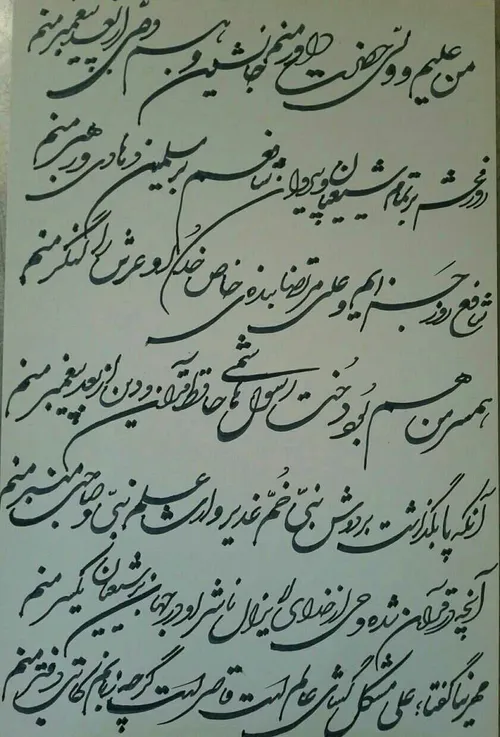 من علیم و ولی حضرت داور منم جانشین و هم وصی از بعد پیغمبر منم
روز محشر بر تمام شیعیان و پیروان شافعم بر مسلمین و هادی و رهبر منم
شافع روز جزایم و علی مرتضا بنده‌ی خاص خدا و عرش را لنگر منم
همسر من هم بُود دُخت رسول هاشمی حافظ قرآن و دین از بعد پیغمبر منم
آنکه پا بگذاشت بر دوش نبیّ خُمّ غدیر وارث علم نبیّ و صاحب منبر منم
آنچه در قرآن شده وحی از خدای لایزال ناشر او در جهان بر شیعیان یکسر منم
مهرنیا گفتا؛ علی مشکل گشای عالم است قاصر است گرچه زبانم کاتب دفتر منم